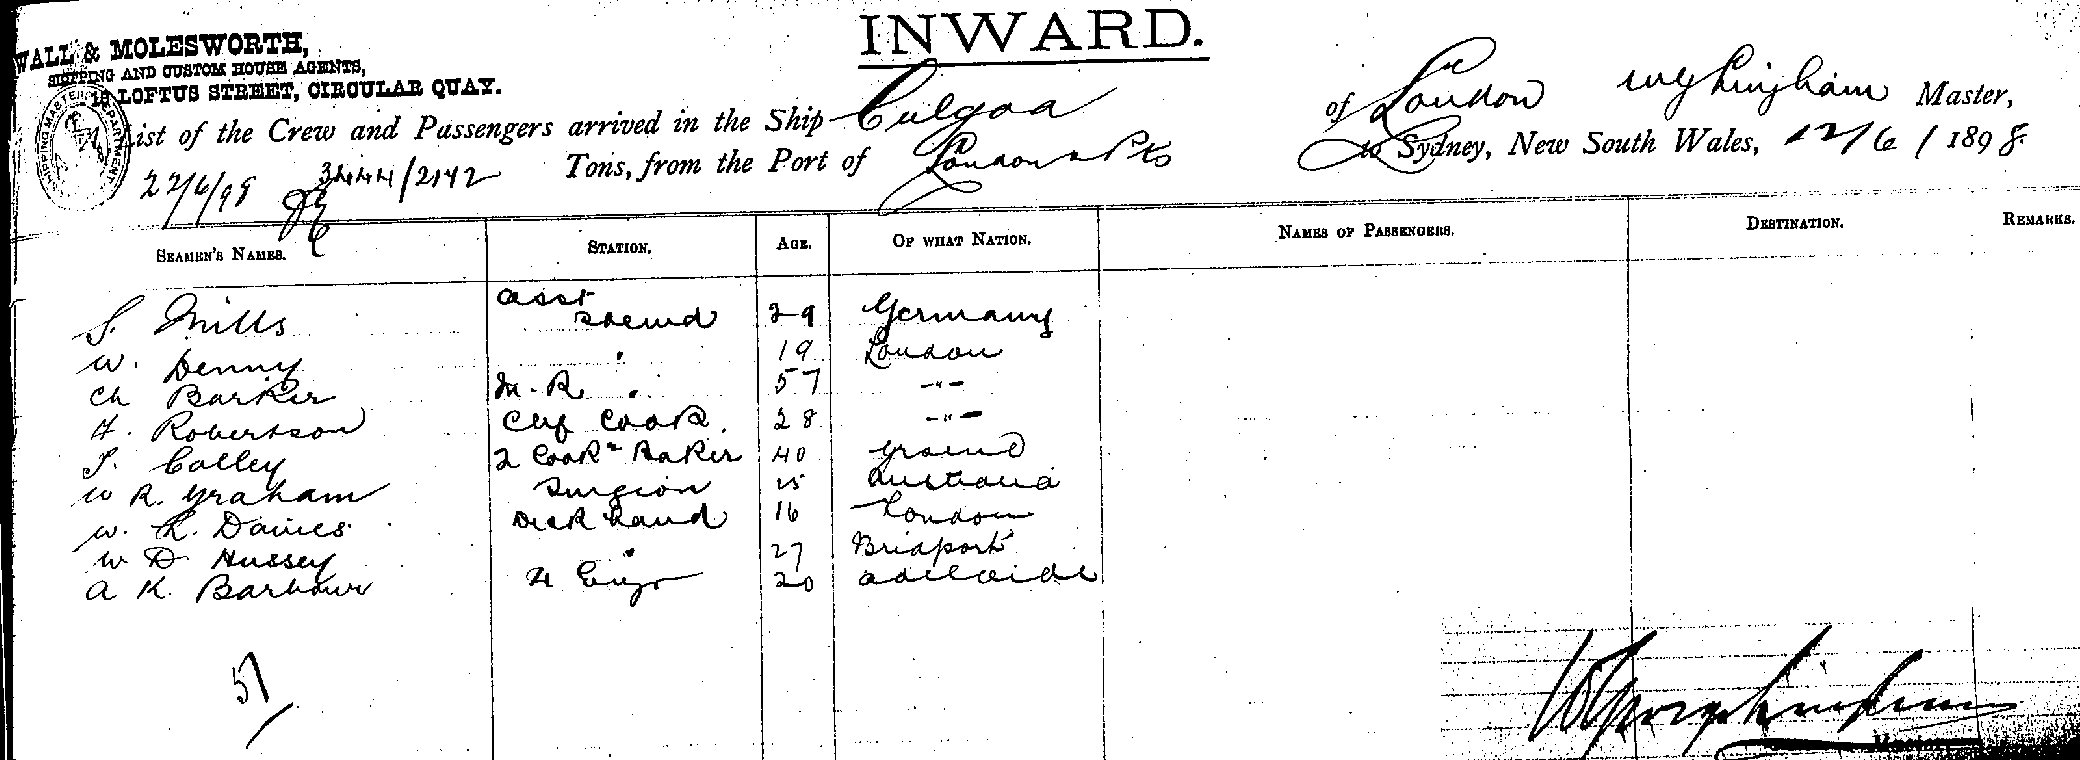 INWARD.
WALL & MOLESWORTH,
SHIPPING AND CUSTOM HOUSE AGENTS,
LOFTUS STREET, CIRCULAR QUAY.
List of the Crew and Passengers arrived in the Ship Culgoa of London Master,
22/6/98 3444/2142 Tons, from the Port of London & Pts to Sydney, New South Wales, 12/6/1898.
SEAMEN'S NAMES. STATION. AGE. OF WHAT NATION. NAMES OF PASSENGERS. DESTINATION. REMARKS.
S. Mills asst 29 Germany
W. Denny " 19 London
Ch Barker M. R " 57 -"-
Robertson Cook 28 -"-
Colley 2 Cook & Baker 40
W R. Graham Surgeon 25 Australia
W. Davies Deck hand 16 London
W D Hussey " 27 Bridport
A K. Barbour 4 Engr 20 Adelaide
51